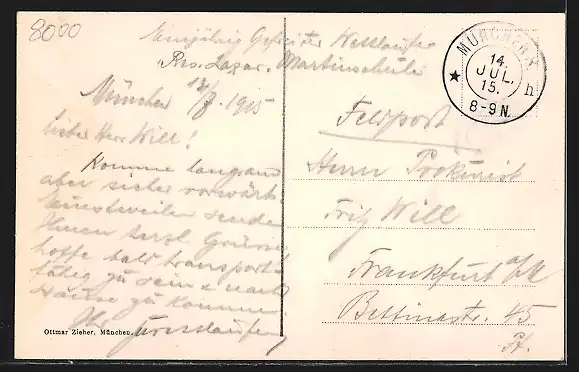 8000
Einjährig Gefreiter Wettlaufer
Res. Lazar. Martinschule
München 14/7. 1915
Lieber Herr Will!
Komme langsam
aber sicher vorwärts.
Einstweilen sende
Ihnen herzl. Grüsse
hoffe bald transport-
fähig zu sein & nach
Hause zu kommen
Ihr
Ottmar Zieher, München.
MÜNCHEN
14.
JUL.
15.
8-9 N.
h
Feldpost
Herrn Prokurist
Fritz Will
Frankfurt a/M
Bettinastr. 45
Pt.